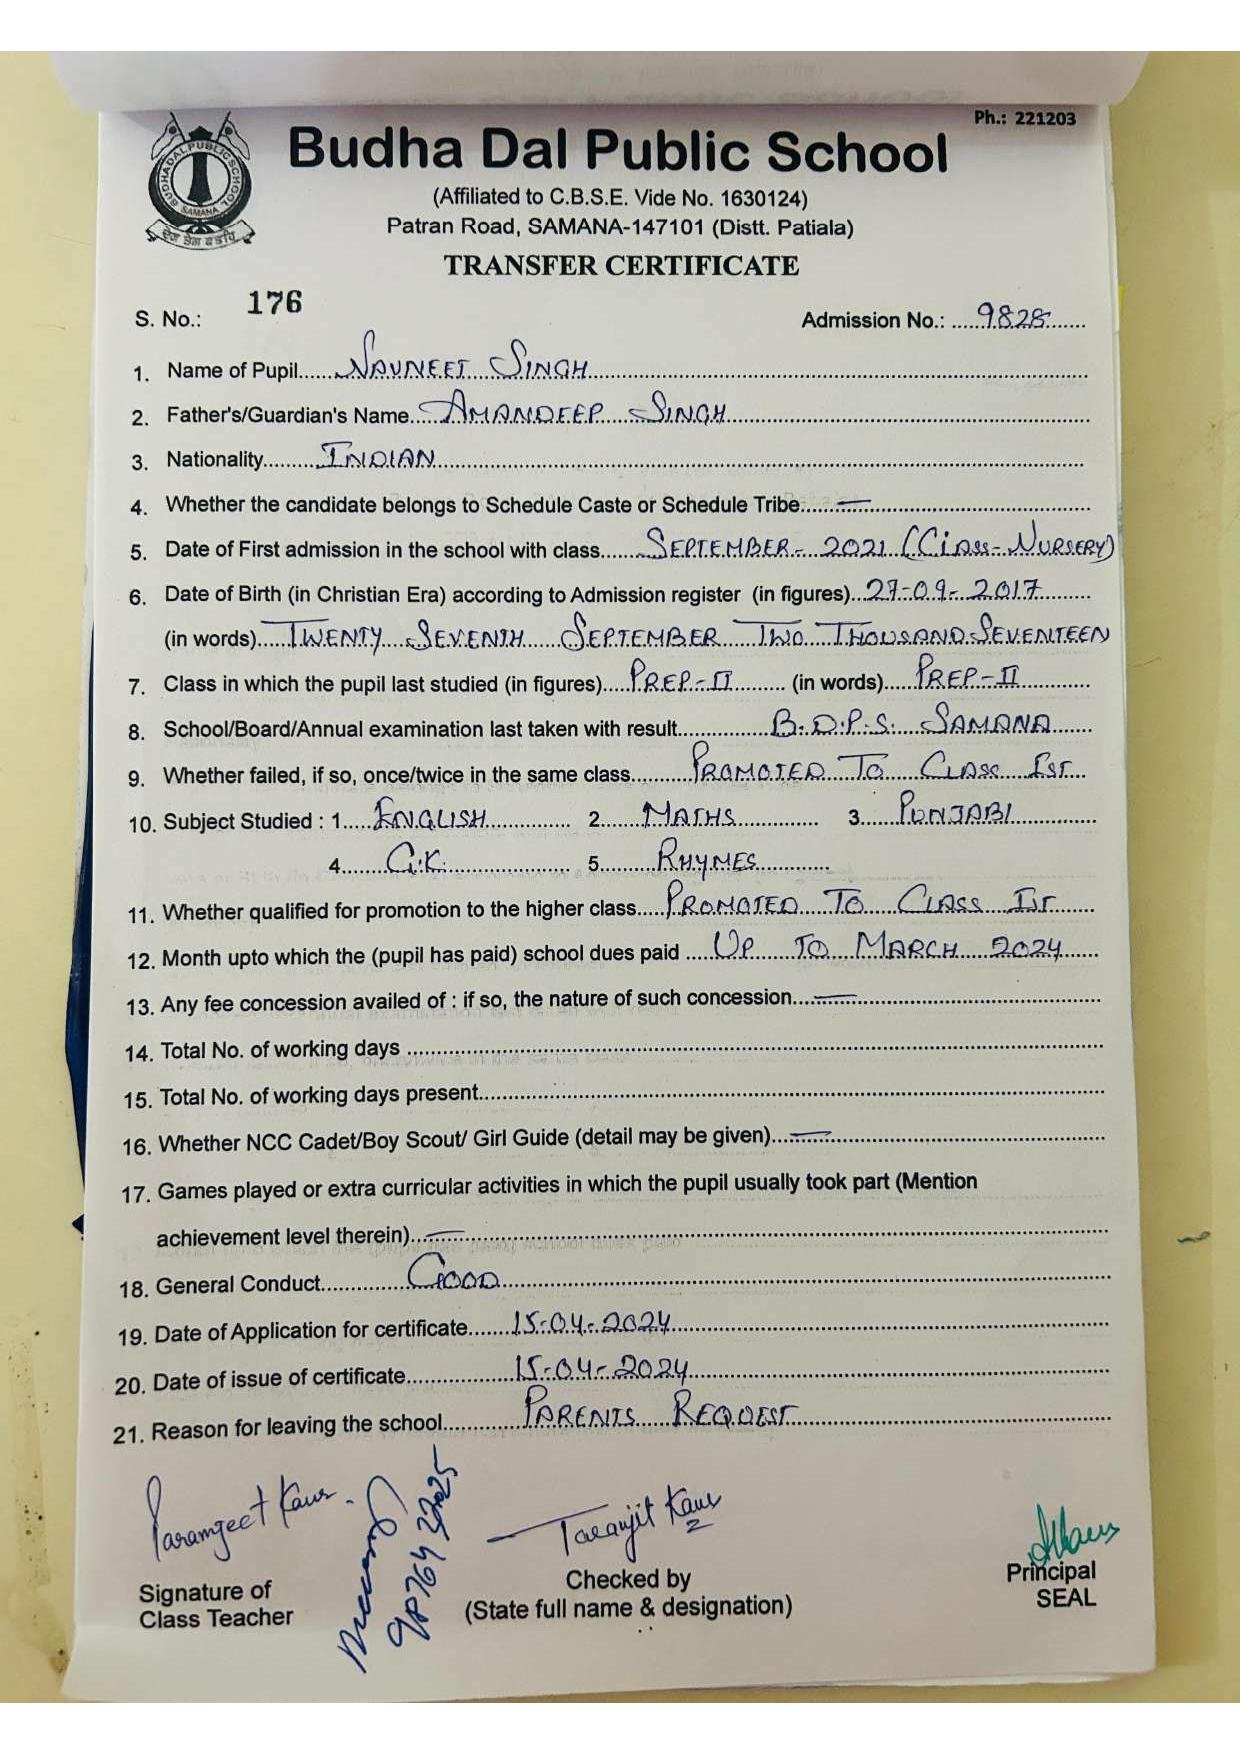 Ph.: 221203
BUDHA DAL PUBLIC SCHOOL
SAMANA
Budha Dal Public School
(Affiliated to C.B.S.E. Vide No. 1630124)
Patran Road, SAMANA-147101 (Distt. Patiala)
TRANSFER CERTIFICATE
S. No.: 176 Admission No.: 9828
1. Name of Pupil NAVNEET SINGH
2. Father's/Guardian's Name AMANDEEP SINGH
3. Nationality INDIAN
4. Whether the candidate belongs to Schedule Caste or Schedule Tribe —
5. Date of First admission in the school with class SEPTEMBER - 2021 (CLASS - NURSERY)
6. Date of Birth (in Christian Era) according to Admission register (in figures) 27-09-2017
(in words) TWENTY SEVENTH SEPTEMBER TWO THOUSAND SEVENTEEN
7. Class in which the pupil last studied (in figures) PREP-II (in words) PREP-II
8. School/Board/Annual examination last taken with result B.D.P.S. SAMANA
9. Whether failed, if so, once/twice in the same class PROMOTED TO CLASS Ist
10. Subject Studied : 1. ENGLISH 2. MATHS 3. PUNJABI
4. G.K. 5. RHYMES
11. Whether qualified for promotion to the higher class PROMOTED TO CLASS Ist
12. Month upto which the (pupil has paid) school dues paid UP TO MARCH 2024
13. Any fee concession availed of : if so, the nature of such concession —
14. Total No. of working days
15. Total No. of working days present
16. Whether NCC Cadet/Boy Scout/ Girl Guide (detail may be given) —
17. Games played or extra curricular activities in which the pupil usually took part (Mention
achievement level therein) —
18. General Conduct GOOD
19. Date of Application for certificate 15-04-2024
20. Date of issue of certificate 15-04-2024
21. Reason for leaving the school PARENTS REQUEST
Paramjeet Kaur.
Taranjit Kaur
Signature of
Class Teacher
Checked by
(State full name & designation)
Principal
SEAL